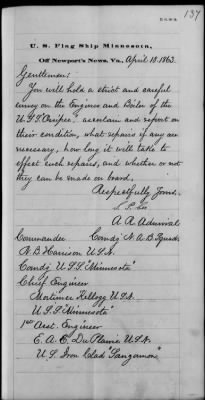 137
U. S. Flag Ship Minnesota,
Off Newport's News, Va., April 18. 1863.
Gentlemen:
You will hold a strict and careful
survey on the Engines and Boiler of the
U.S.S. ascertain and report on
their condition, what repairs if any are
necessary, how long it will take to
effect such repairs, and whether or not
they can be made on board.
Respectfully Yours,
S. P. Lee
A. R. Admiral
Commander Comdg N. A. B. Squad.
N. B. Harrison U.S.N.
Comdg U.S.S. "Minnesota"
Chief Engineer
Mortimer Kellogg U.S.N.
U.S.S. "Minnesota"
1st Asst. Engineer
E. A. C. Du Plaine U.S.N.
U.S. Iron Clad "Sangamon"